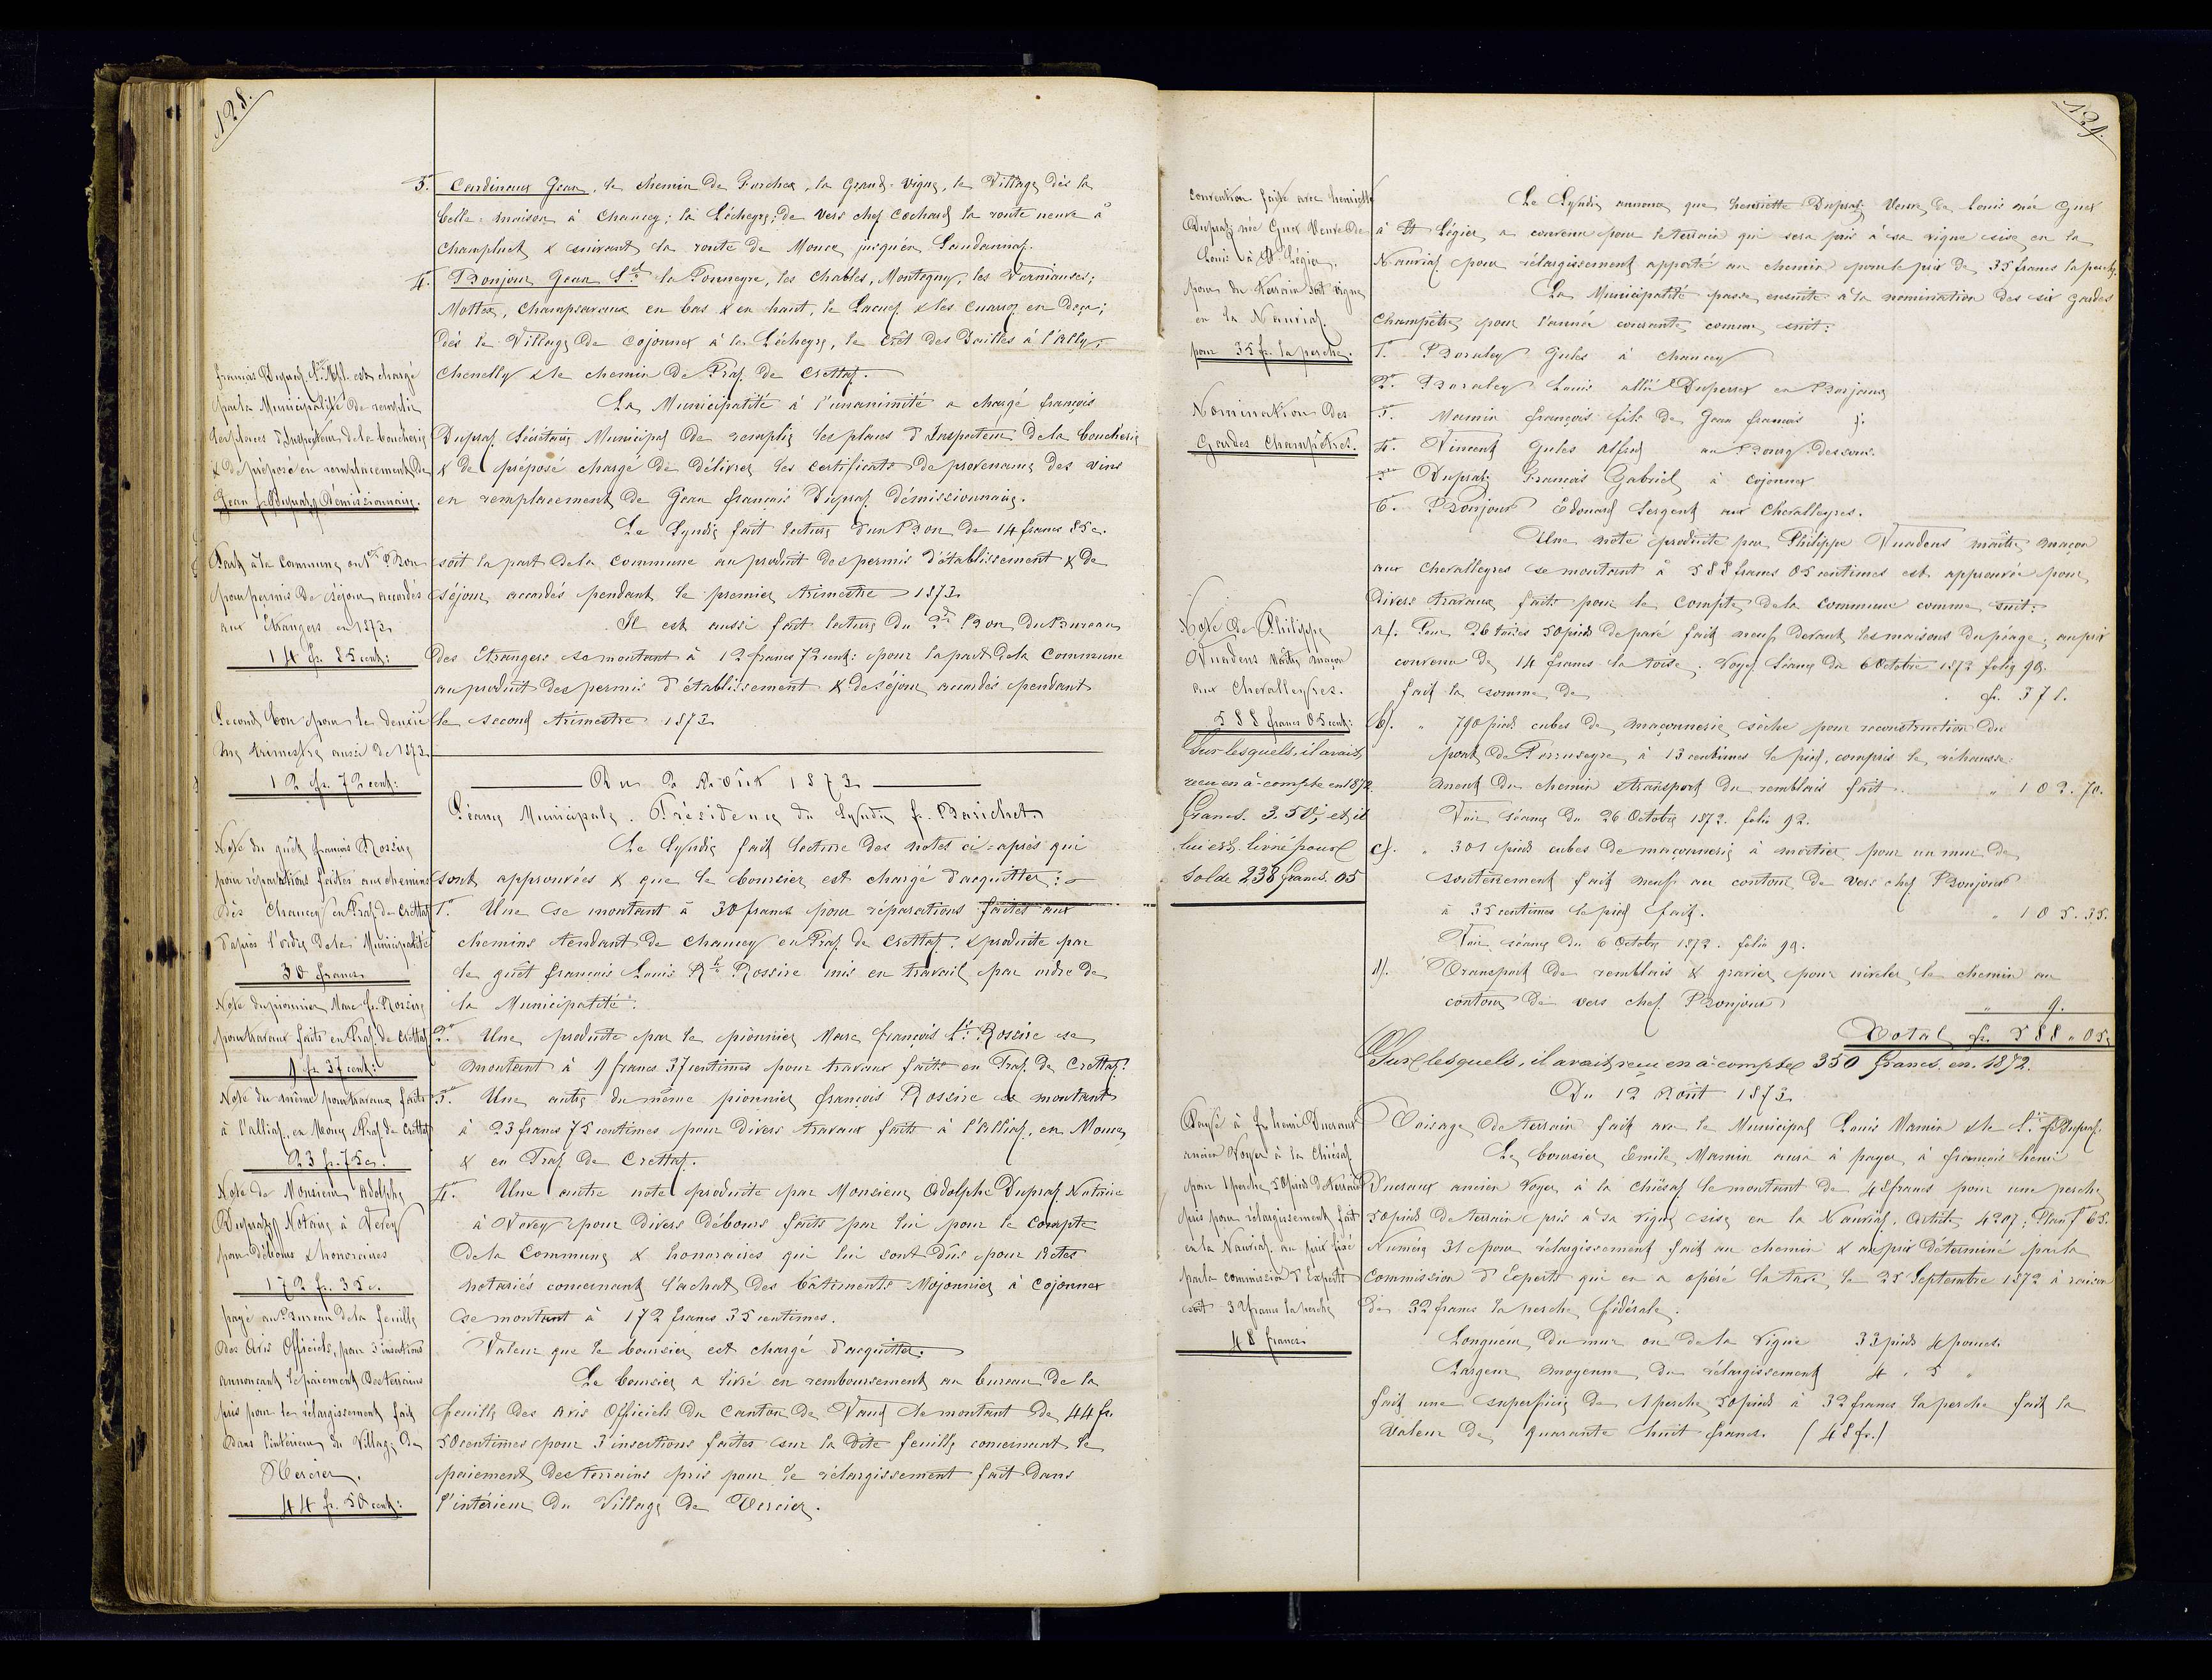 128.
3°. Cardinaux Jean, le chemin de Porchex, la Grand-Vigne, le Village dès la
belle-maison à Chaucey; la Lécheyre; de vers chez Cochard la route neuve à
Champluet & suivant la route de Mouce jusqu'en
4°. Bonjour Jean la Tonneyre, les Chables, Montegny, les Verniauses;
Mottex, Champsavaux en bas & en haut, le Lacuez & les Cuarroz en deça;
dès le Village de Cojonnex à la Lécheyre, le Crêt des Pailles à l'Ally;
Chenelly & le chemin de Praz de Crettaz.
françois Dupraz est chargé
par la Municipalité de remplir
les places d'Inspecteur de la boucherie
& de préposé en remplacement de
Jean fr. Dupraz démissionnaire.
La Municipalité à l'unanimité a chargé françois
Dupraz Sécrétaire Municipal de remplir les places d'Inspecteur de la boucherie
& de préposé chargé de délivrer les certificats de provenance des vins
en remplacement de Jean françois Dupraz démissionnaire.
Part à la Commune au 1er Bon
pour permis de séjour accordés
aux Etrangers en 1873
14 fr. 85 cent:
Le Syndic fait lecture d'un Bon de 14 francs 85 c.
soit la part de la commune au produit des permis d'établissement & de
séjour accordés pendant le premier trimestre 1873.
Il est aussi fait lecture du 2d Bon du Bureau
des Etrangers se montant à 12 francs 72 cent: pour la part de la Commune
au produit des permis d'établissement & de séjour accordés pendant
le second trimestre 1873
Second bon pour le deuxiè
me trimestre aussi de 1873
12 fr. 72 cent:
Du 2 Août 1873
Séance Municipale. Présidence du Syndic fr. Barichet.
Le Syndic fait lecture des notes ci-après qui
sont approuvées & que le boursier est chargé d'acquitter:
Note du guêt françois Rossire
pour réparations faites aux chemins
dès Chaucey en Praz de Crettaz
d'après l'ordre de la Municipalité
30 francs
1°. Une se montant à 30 francs pour réparations faites aux
chemins tendant de Chaucey en Praz de Crettaz. & produite par
le guêt françois Louis Rossire mis en travail par ordre de
la Municipalité.
Note du pionnier Marc fr. Rossire
pour travaux faits en Praz de Crettaz
9 fr 37 cent:
2°. Une produite par le pionnier Marc françois Ls. Rossire se
montant à 9 francs 37 centimes pour travaux faits en Praz de Crettaz.
Note du même pour travaux faits
à l'alliaz, en Mouce & Praz de Crettaz
23 fr. 75 c.
3°. Une autre du même pionnier françois Rossire se montant
à 23 francs 75 centimes pour divers travaux faits à l'Alliaz, en Mouce
& en Praz de Crettaz.
Note de Monsieur Adolphe
Dupraz Notaire à Vevey
pour débours & honoraires
172 fr. 35 c.
4°. Une autre note produite par Monsieur Adolphe Dupraz Notaire
à Vevey pour divers débours faits par lui pour le compte
de la Commune & honoraires qui lui sont dûs pour actes
notariés concernant l'achat des bâtiments Mojonnier à Cojonnex
se montant à 172 francs 35 centimes.
Valeur que le boursier est chargé d'acquitter.
payé au Bureau de la feuille
des Avis Officiels, pour 3 insertions
annonçant le paiement des terrains
pris pour le rélargissement fait
dans l'intérieur du Village de
Tercier.
44 fr. 50 cent:
Le boursier a livré en remboursement au bureau de la
feuille des Avis Officiels du Canton de Vaud le montant de 44 fr.
50 centimes pour 3 insertions faites sur la dite feuille concernant le
paiement des terrains pris pour le rélargissement fait dans
l'intérieur du Village de Tercier.
129.
Convention faite avec henriette
Dupraz née Guex Veuve de
Louis à St. Légier.
pour du terrain soit vigne
en la Nauriaz.
pour 35 fr. la perche.
Le Syndic annonce que henriette Dupraz Veuve de Louis née Guex
à St Légier, a convenu pour le terrain qui sera pris à sa vigne sise en la
Nauriaz pour rélargissement apporté au chemin pour le prix de 35 francs la perche.
Nomination des
Gardes Champêtres.
La Municipalité passe ensuite à la nomination des six gardes
Champêtres pour l'année courante comme suit:
1°. Boraley Jules à Chaucey
2°. Boraley Louis allié Duperrex en Borjoux
3°. Mamin françois fils de Jean françois
4°. Vincent Jules Alfred au Bourg-dessous.
5° Dupraz François Gabriel à Cojonnex
6°. Bonjour Edouard Sergent aux Chevalleyres.
Note de Philippe
Vuadens Maître maçon
aux Chevalleyres.
588 francs 05 cent:
Sur lesquels, il avait,
reçu en à-compte en 1872
Francs. 350; et il
lui est, livré pour
Solde 238 francs. 05
Une note produite par Philippe Vuadens maître maçon
aux Chevalleyres se montant à 588 francs 05 centimes est approuvée pour
divers travaux faits pour le Compte de la commune comme suit:
a/. Pour 26 toises 50 pieds de pavé fait neuf devant les maisons du péage; au prix
convenu de 14 francs la toise. Voyez Séance du 6 Octobre 1872 folio 90.
fait la somme de fr. 371.
b/. " 790 pieds cubes de maçonnerie sèche pour reconstruction du
pont de à 13 centimes le pied, compris le réhausse-
ment du chemin & transport du remblais fait " 102. 70.
Voir séance du 26 Octobre 1872. folio 92.
c/. " 301 pieds cubes de maçonnerie à mortier pour un mur de
soutènement fait neuf au contour de vers chez Bonjour
à 35 centimes le pied fait. " 105. 35.
Voir séance du 6 Octobre 1872. folio 90.
d/. Transport de remblais & gravier pour niveler le chemin au
contour de vers chez Bonjour " 9.
Total fr. 588 " 05
Sur lesquels, il avait, reçu en à-compte 350 francs. en. 1872.
Du 12 Août 1873
Toisage de terrain fait avec le Municipal Louis Mamin & le Sre fr Dupraz.
Payé à fr. henri Ducraux
ancien Voyer à la Chiésaz
pour 1 perche, 50 pieds de terrain
pris pour rélargissement fait
en la Nauriaz. au prix fixé
par la commission d'Experts
soit 32 francs la perche
48 francs
Le boursier Emile Mamin aura à payer à françois henri
Ducraux ancien Voyer à la Chiésaz le montant de 48 francs pour une perche
50 pieds de terrain pris à sa vigne sise en la Nauriaz. Article 4207; Plan f° 65.
Numéro 31 pour rélargissement fait au chemin & au prix déterminé par la
Commission d'Experts qui en a opéré la taxe le 25 Septembre 1872 à raison
de 32 francs la perche fédérale.
Longueur du mur ou de la Vigne 33 pieds 4 pouces.
Largeur moyenne du rélargissement 4 " 5 "
fait une superficie de 1 perche 50 pieds à 32 francs la perche fait la
Valeur de quarante huit francs. (48 fr.)